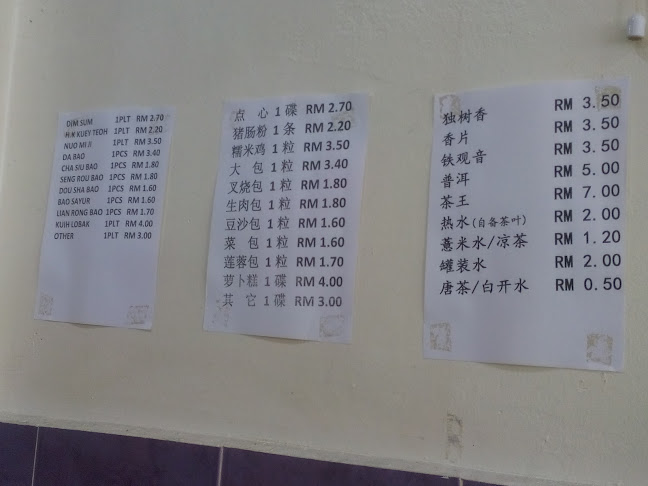 DIM SUM 1PLT RM 2.70
KUEY TEOH 1PLT RM 2.20
NUO MI JI 1PLT RM 3.50
DA BAO 1PCS RM 3.40
CHA SIU BAO 1PCS RM 1.80
SENG ROU BAO 1PCS RM 1.80
DOU SHA BAO 1PCS RM 1.60
BAO SAYUR 1PCS RM 1.60
LIAN RONG BAO 1PCS RM 1.70
KUIH LOBAK 1PLT RM 4.00
OTHER 1PLT RM 3.00
点 心 1 碟 RM 2.70
猪肠粉 1 条 RM 2.20
糯米鸡 1 粒 RM 3.50
大 包 1 粒 RM 3.40
叉烧包 1 粒 RM 1.80
生肉包 1 粒 RM 1.80
豆沙包 1 粒 RM 1.60
菜 包 1 粒 RM 1.60
莲蓉包 1 粒 RM 1.70
萝卜糕 1 碟 RM 4.00
其 它 1 碟 RM 3.00
独树香 RM 3.50
香片 RM 3.50
铁观音 RM 3.50
普洱 RM 5.00
茶王 RM 7.00
热水(自备茶叶) RM 2.00
薏米水/凉茶 RM 1.20
罐装水 RM 2.00
唐茶/白开水 RM 0.50